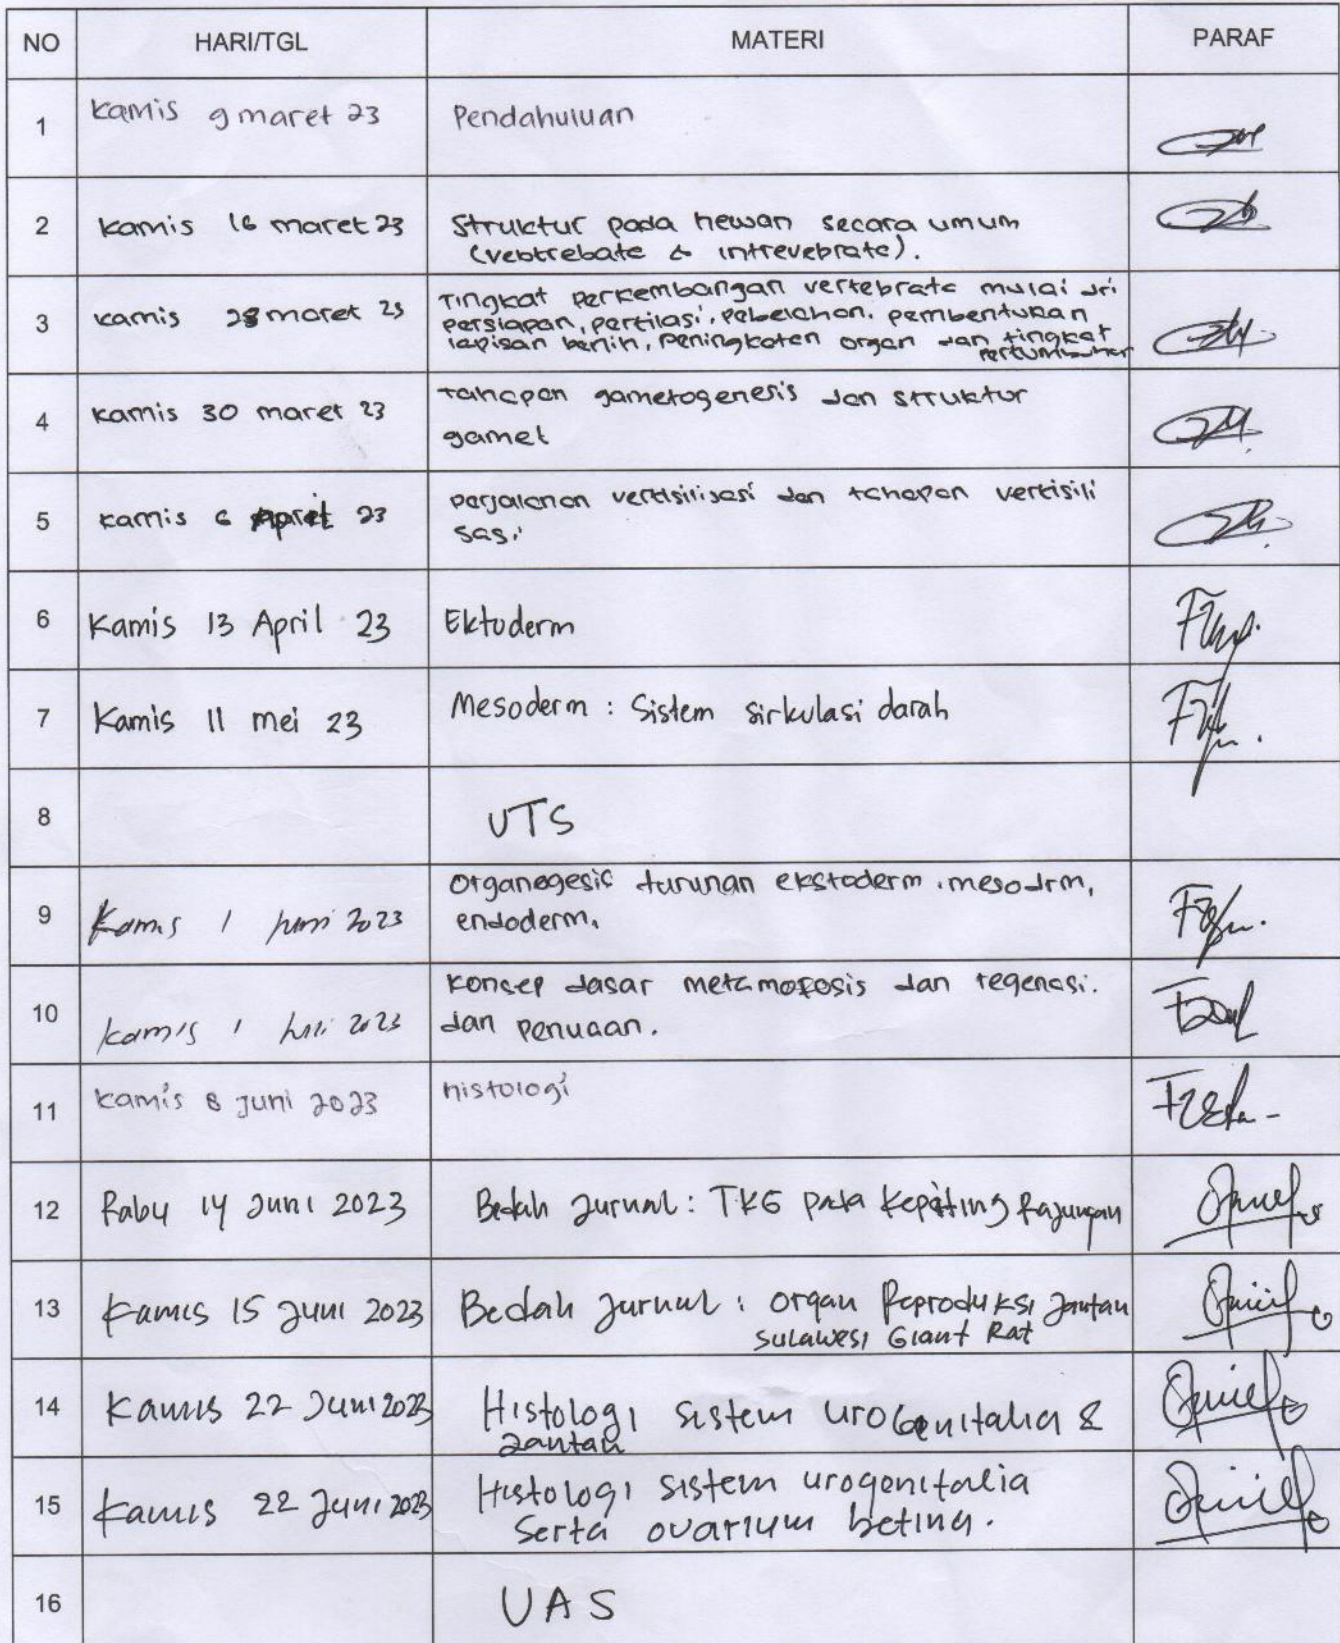 NO HARI/TGL MATERI PARAF
1 Kamis 9 maret 23 Pendahuluan
2 Kamis 16 maret 23 Struktur pada hewan secara umum
(vebtrebate & intrevebrate).
3 Kamis 23 maret 23 Tingkat perkembangan vertebrata mulai dri
persiapan, pertilasi, pebelahan, pembentukan
lapisan benih, peningkatan organ dan tingkat
pertumbuhan
4 Kamis 30 maret 23 tahapan gametogenesis dan struktur
gamet
5 Kamis 6 April 23 perjalanan vertisilisasi dan tahapan vertisili
sasi
6 Kamis 13 April 23 Ektoderm
7 Kamis 11 mei 23 Mesoderm : Sistem sirkulasi darah
8 UTS
9 Kamis 1 juni 2023 Organogesis turunan ekstoderm, mesodrm,
endoderm.
10 Kamis 1 juni 2023 Konsep dasar metamofosis dan regenasi.
dan penuaan.
11 Kamis 8 Juni 2023 histologi
12 Rabu 14 Juni 2023 Bedah Jurnal : TKG pada Kepiting Rajungan
13 Kamis 15 Juni 2023 Bedah Jurnal : organ Reproduksi Jantan
Sulawesi Giant Rat
14 Kamis 22 Juni 2023 Histologi sistem urogenitalia &
Jantan
15 Kamis 22 Juni 2023 Histologi sistem urogenitalia
Serta ovarium betina.
16 UAS